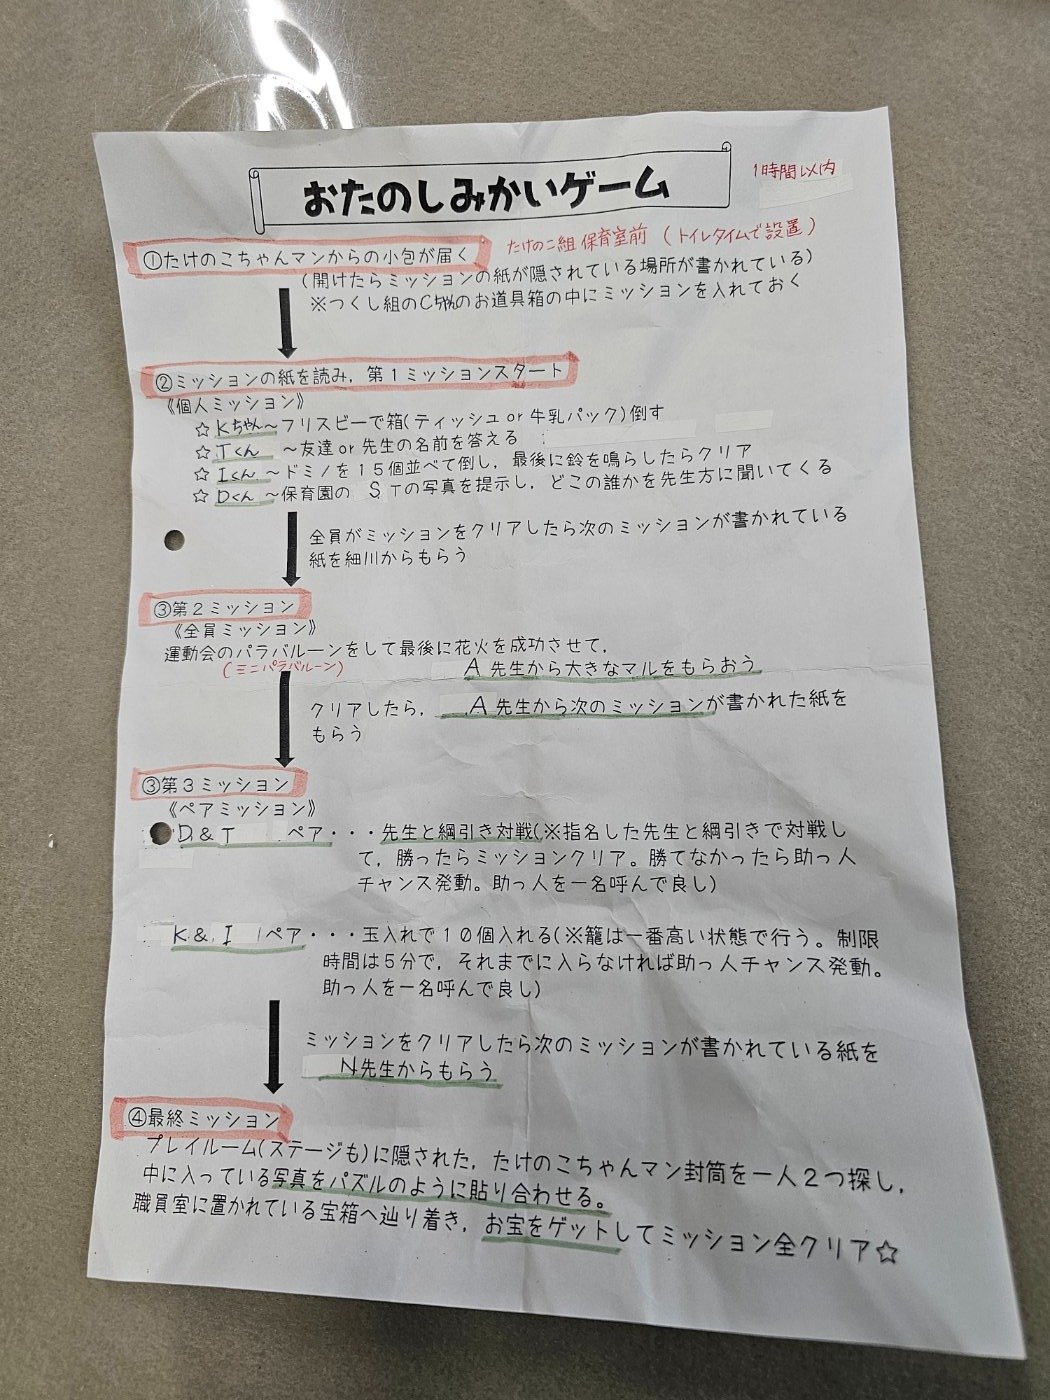 おたのしみかいゲーム
1時間以内
①たけのこちゃんマンからの小包が届く
たけのこ組 保育室前 （トイレタイムで設置）
（開けたらミッションの紙が隠されている場所が書かれている）
※つくし組のCちゃんのお道具箱の中にミッションを入れておく
②ミッションの紙を読み，第１ミッションスタート
《個人ミッション》
☆Kちゃん～フリスビーで箱(ティッシュor牛乳パック)倒す
☆Tくん ～友達or先生の名前を答える
☆Iくん～ドミノを１５個並べて倒し，最後に鈴を鳴らしたらクリア
☆Dくん ～保育園の STの写真を提示し，どこの誰かを先生方に聞いてくる
全員がミッションをクリアしたら次のミッションが書かれている
紙を細川からもらう
③第２ミッション
《全員ミッション》
運動会のパラバルーンをして最後に花火を成功させて，
(ミニパラバルーン)
A 先生から大きなマルをもらおう
クリアしたら， A 先生から次のミッションが書かれた紙を
もらう
③第３ミッション
《ペアミッション》
D & T ペア・・・先生と綱引き対戦(※指名した先生と綱引きで対戦し
て，勝ったらミッションクリア。勝てなかったら助っ人
チャンス発動。助っ人を一名呼んで良し)
K & I ペア・・・玉入れで１０個入れる(※籠は一番高い状態で行う。制限
時間は５分で，それまでに入らなければ助っ人チャンス発動。
助っ人を一名呼んで良し)
ミッションをクリアしたら次のミッションが書かれている紙を
N先生からもらう
④最終ミッション
プレイルーム(ステージも)に隠された，たけのこちゃんマン封筒を一人２つ探し，
中に入っている写真をパズルのように貼り合わせる。
職員室に置かれている宝箱へ辿り着き，お宝をゲットしてミッション全クリア☆